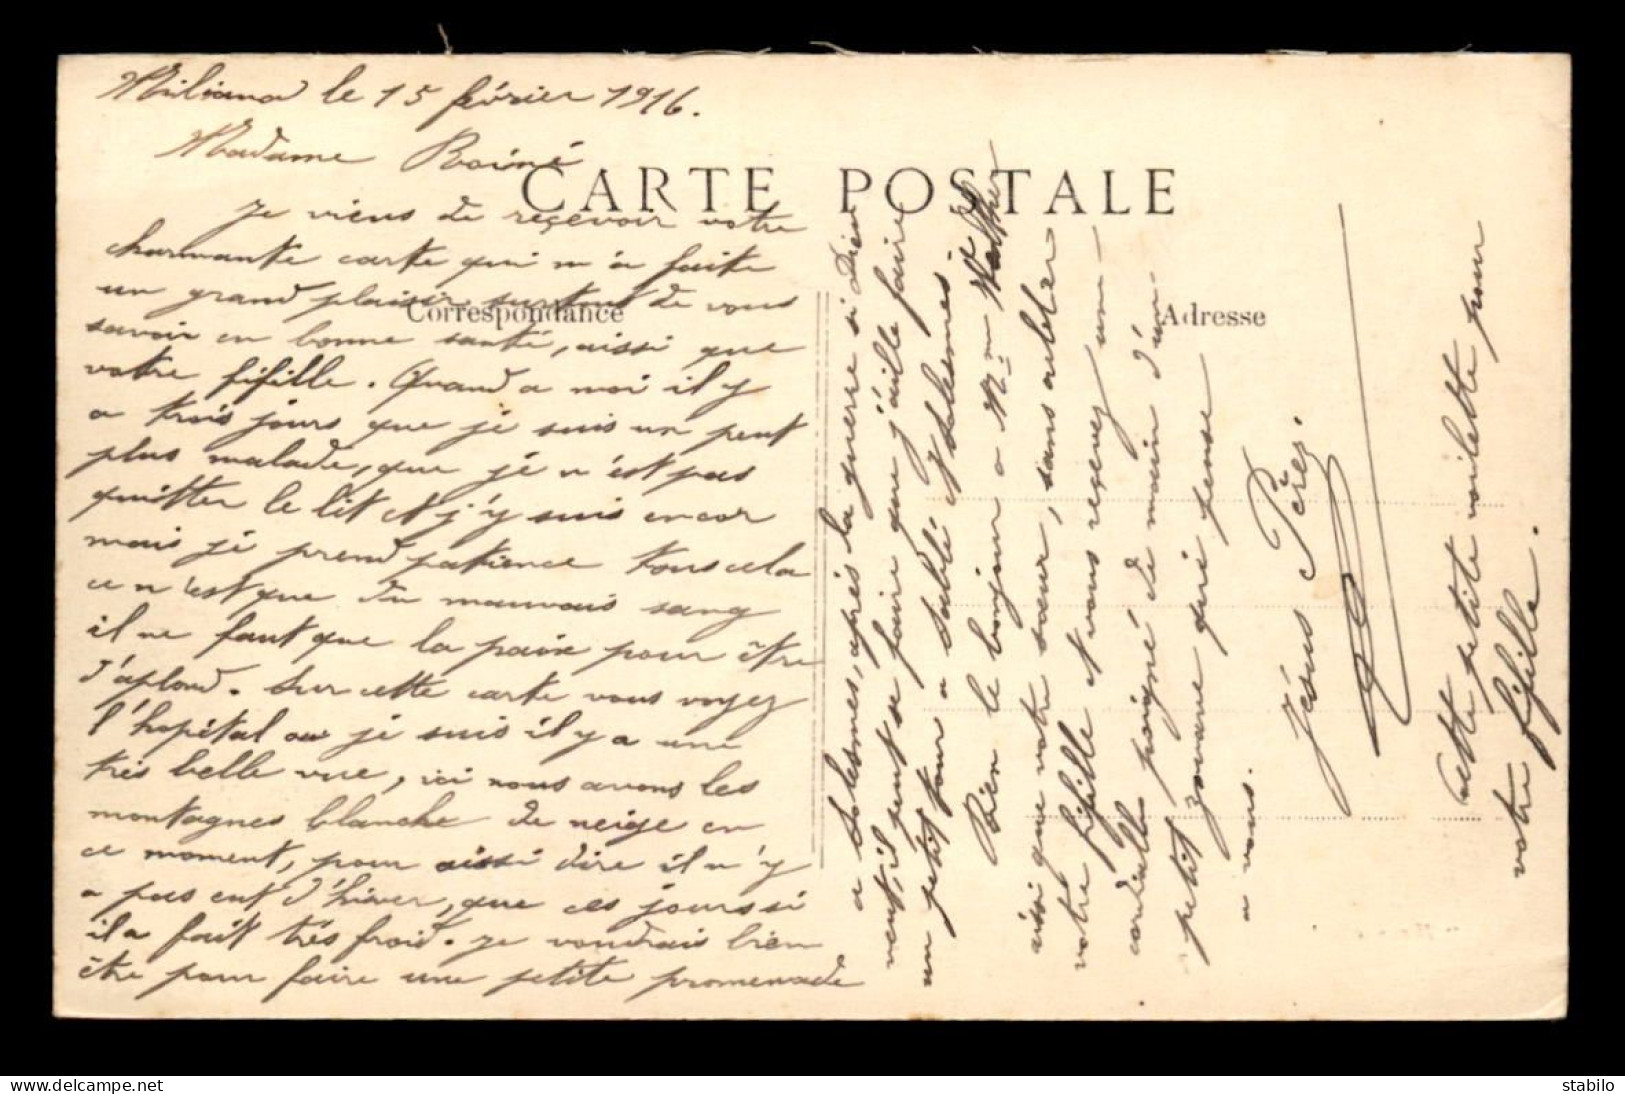 Miliana le 15 février 1916.
Madame Boiné
CARTE POSTALE
Je viens de reçevoir votre
charmante carte qui m'a faite
un grand plaisir surtout de vous
Correspondance
savoir en bonne santé, aissi que
votre fifille. Quand a moi il y
a trois jours que je suis un peut
plus malade, que je n'est pas
quitter le lit et j'y suis encor
mais je prend patience tous cela
ce n'est que du mauvais sang
il ne faut que la paix pour être
d'aplond. Sur cette carte vous voyez
l'hopital ou je suis il y a une
très belle vue, ici nous avons les
montagnes blanche de neige en
ce moment, pour aissi dire il n'y
a pas eut d'hiver, que ces jours si
il a fait très froid. Je voudrais bien
être pour faire une petite promenade
a Solesmes, après la guerre si Dieu
veut, il peut se faire que j'aille faire
un petit tour a Sablé et Solesmes.
Bien le bonjour a Mme
aissi que votre soeur, sans oublier
votre fifille et vous reçevez un
cordialle poigné de main d'un
petit zouave qui pense
a vous.
Adresse
Jésus Pérez.
Cette petite voilette pour
votre fifille.
stabilo